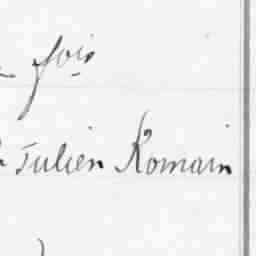 fois
Julien Romain